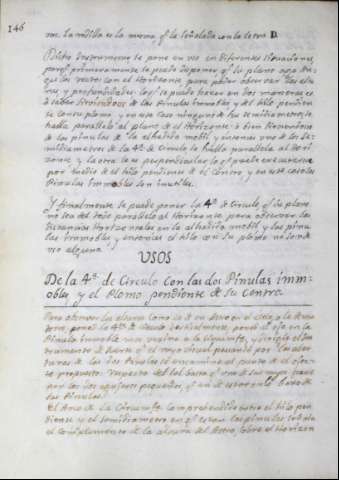 146
con la rodilla es la misma q.e la señalada con la letra D.
Dicho Instrumento se pone en uso en diferentes situaciones,
porq.e primeramente se puede disponer q.e su plano sea
con el Horizonte para poder observar las altu-
ras y profundidades, lo q.e se puede hacer en dos maneras es
à saber sirviendose de las Pinulas immobles y del hilo pendien-
te con su plomo y en este caso ninguno de sus semidiametros se
halla parallelo al plano de el Horizonte; ò bien sirviendose
de las pinulas de la alhidada mobil, y entonces uno de los se-
midiametros de la 4.ª de Circulo se halla parallelo al Hori-
zonte y la otra le es perpendicular, lo q.e puede executarse
por medio de el hilo pendiente de el Centro y en este caso las
Pinulas Immobles son inutiles.
Y finalmente se puede poner la 4.ª de Circulo q.e su plano
sea del todo parallelo al Horizonte para observar las
distancias Horizontales en la alhidada mobil y las pinu-
las immobles, y entonces el hilo con su plomo no son de
uso alguno.
USOS
De la 4.ª de Circulo con las dos Pinulas imm-
obles y el Plomo pendiente de su Centro.
Para observar las alturas como la de un Astro en el Cielo, ò la de una
torre, pones la 4.ª de Circulo verticalmente, pones el ojo en la
Pinula immoble mas vecina a la Circunfer.ª, y dirigis el Ins-
trumento de suerte q.e el rayo visual pasando por las aber-
turas de las dos Pinulas se encamine al punto de el obje-
to propuesto. Respecto del Sol basta q.e uno de sus rayos pase
por los dos agujeros pequeños, q.e
las Pinulas.
El Arco de la Circunfer.ª comprehendido entre el hilo pen-
diente y el semidiametro en q.e estan las pinulas señala
el Complemento de la altura del Astro, sobre el Horizon